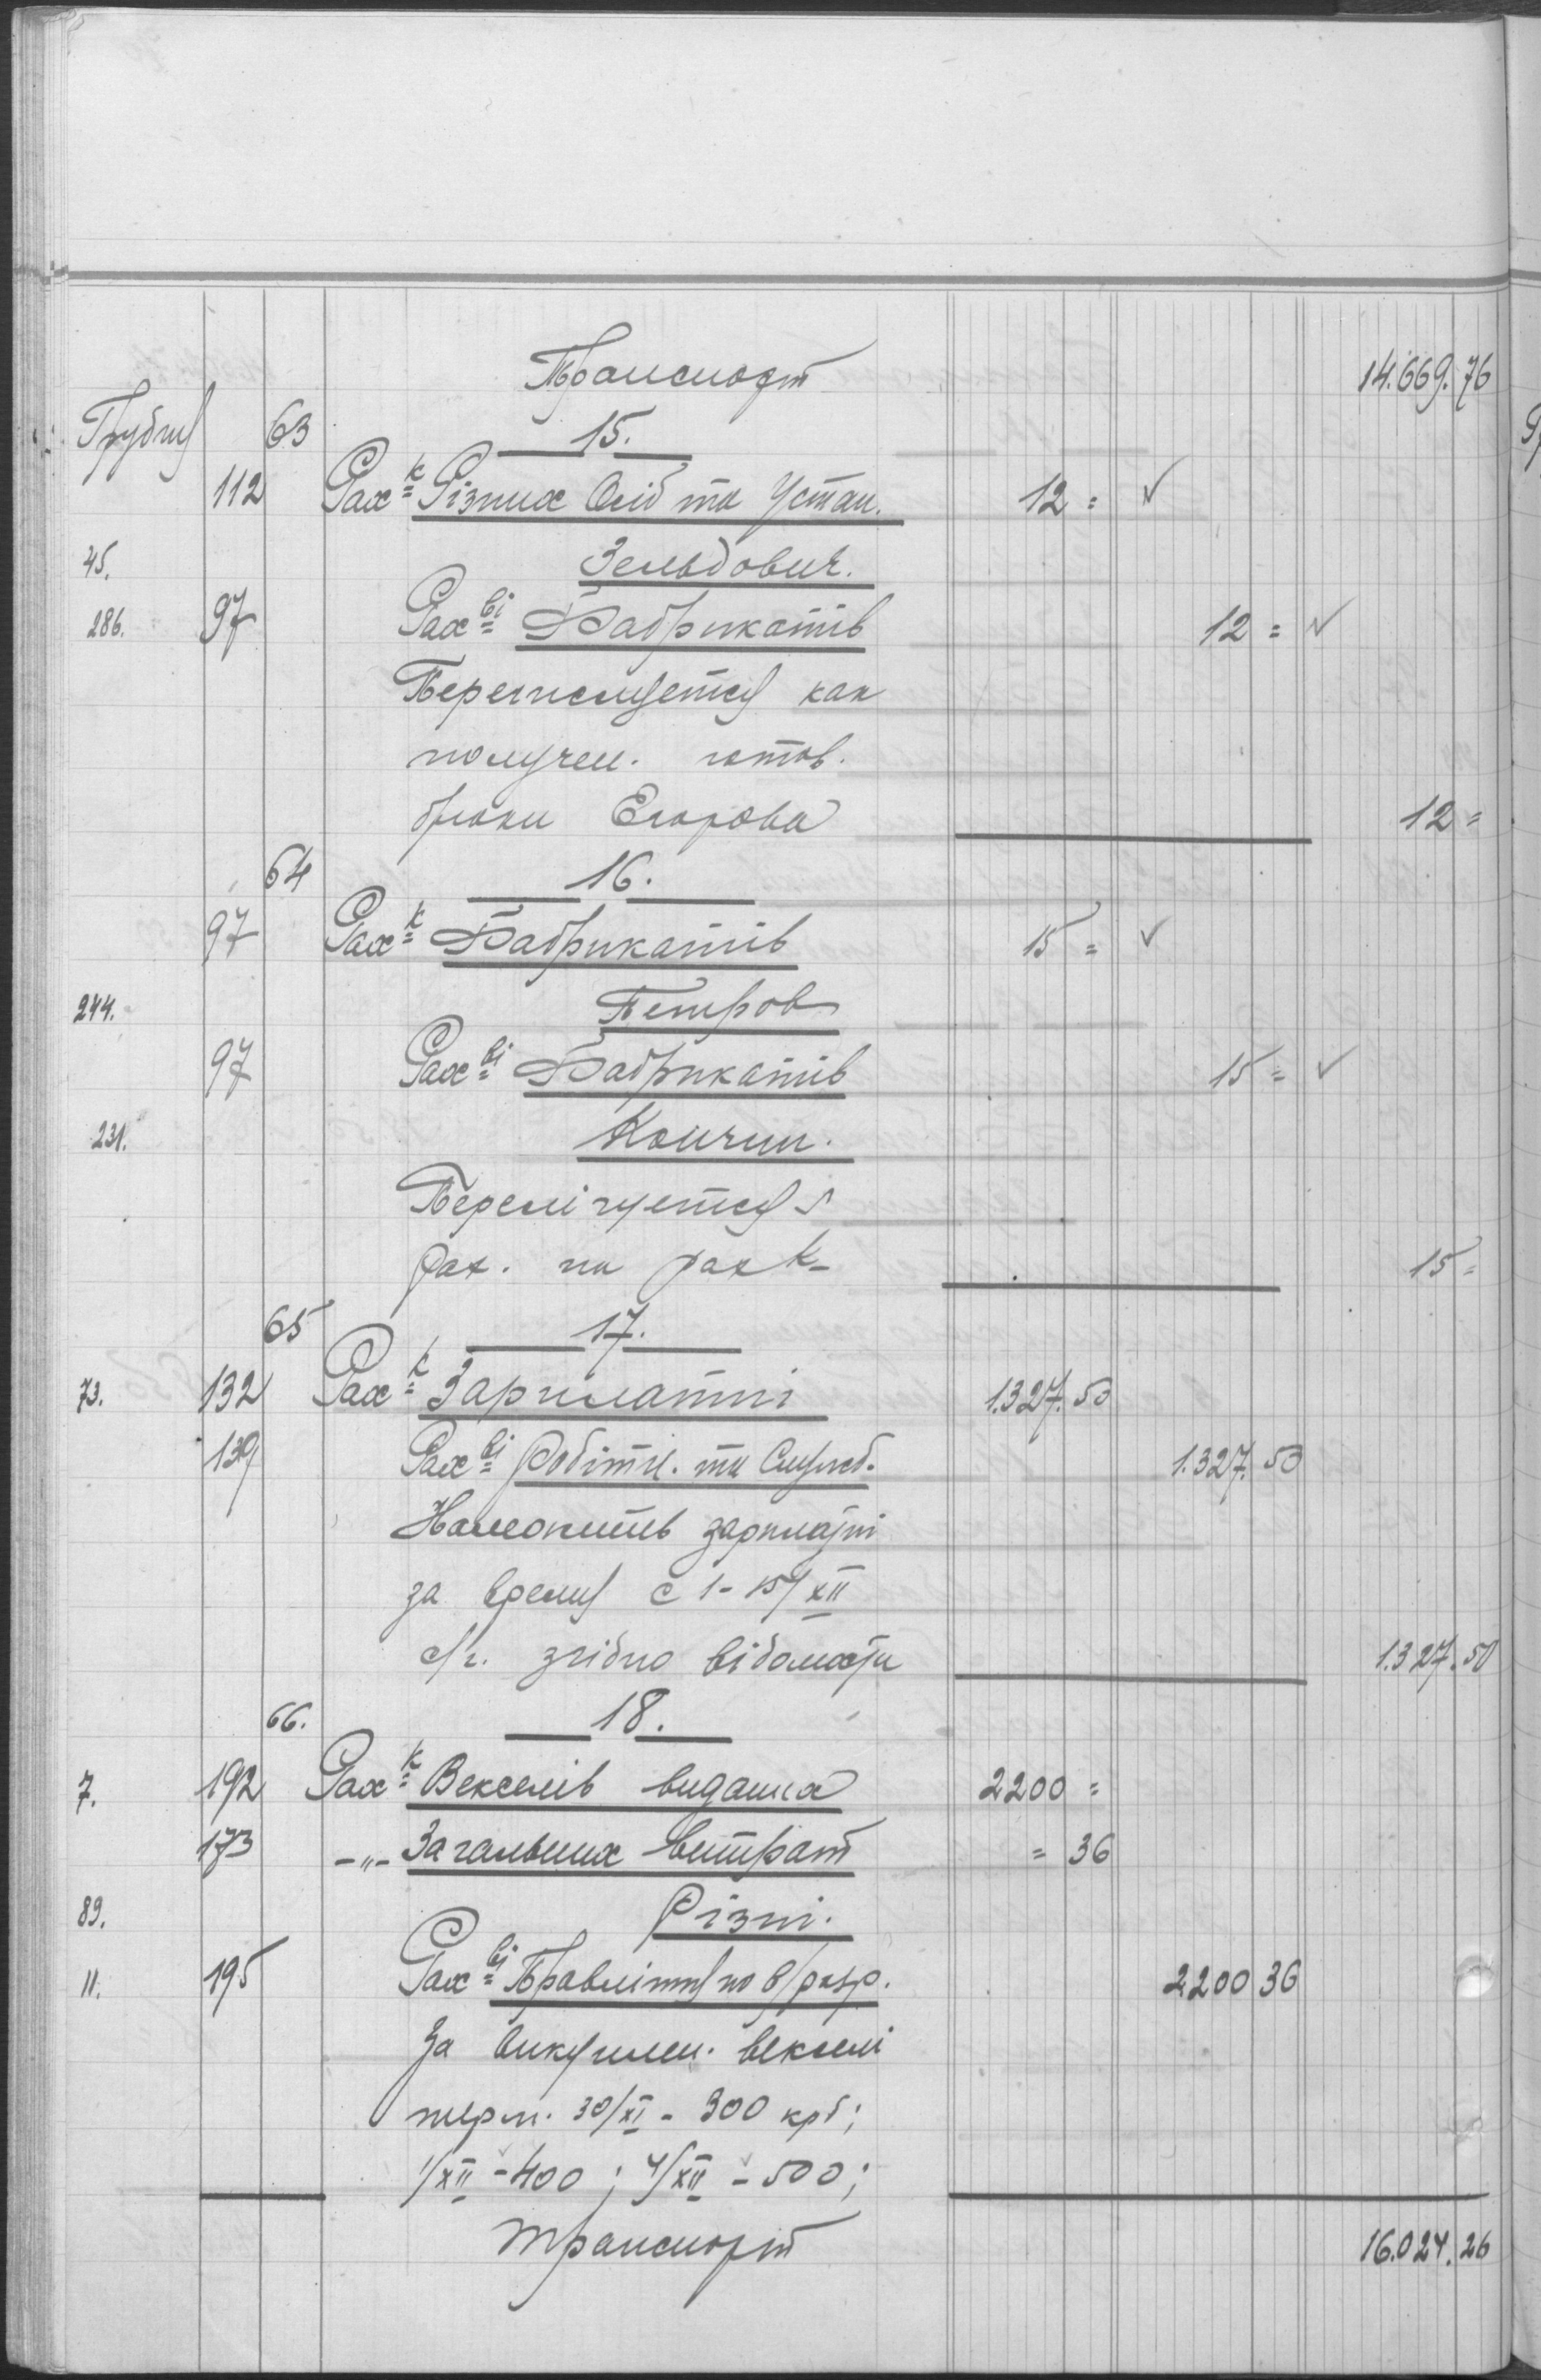 Транспорт 14.669.76
Грудня 63 15.
112 Рах-к Різних Осіб та Устан. 12 = ✓
45. Зельдович.
286. 97 Рах-ві Фабрикатів 12 = ✓
Перечисляется как
получен. готов.
брюки Егорова 12 =
64 16.
97 Рах-к Фабрикатів 15 = ✓
244. Петров
97 Рах-ві Фабрикатів 15 = ✓
231. Кончин.
Перелічуется з
рах. на рах-к 15 =
65 17.
73. 132 Рах-к Зарплатні 1.327.50
139 Рах-ві Робітн. та Служб. 1.327.50
Належить зарплатні
за время с 1-15/XII
с/г. згідно відомости 1.327.50
66. 18.
7. 192 Рах-к Векселів виданих 2200 =
173 -„- Загальних витрат = 36
89. Різні.
11. 195 Рах-ві Правління по в/разр. 2200 36
За викуплен. векселі
терм. 30/XI - 300 крб;
1/XII - 400 ; 4/XII - 500;
Транспорт 16.024.26